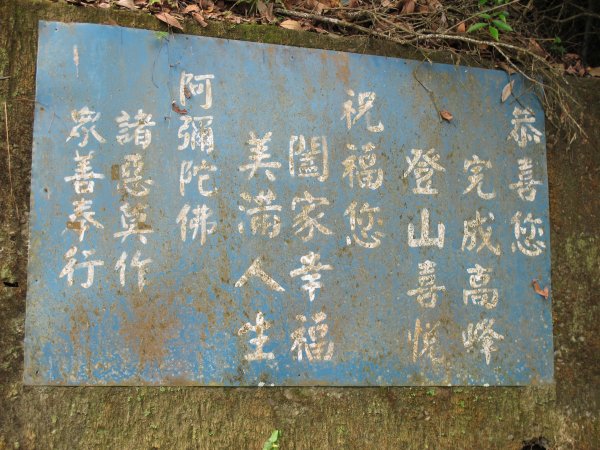 恭喜您
完成高峰
登山喜悅
祝福您
闔家幸福
美滿人生
阿彌陀佛
諸惡莫作
眾善奉行